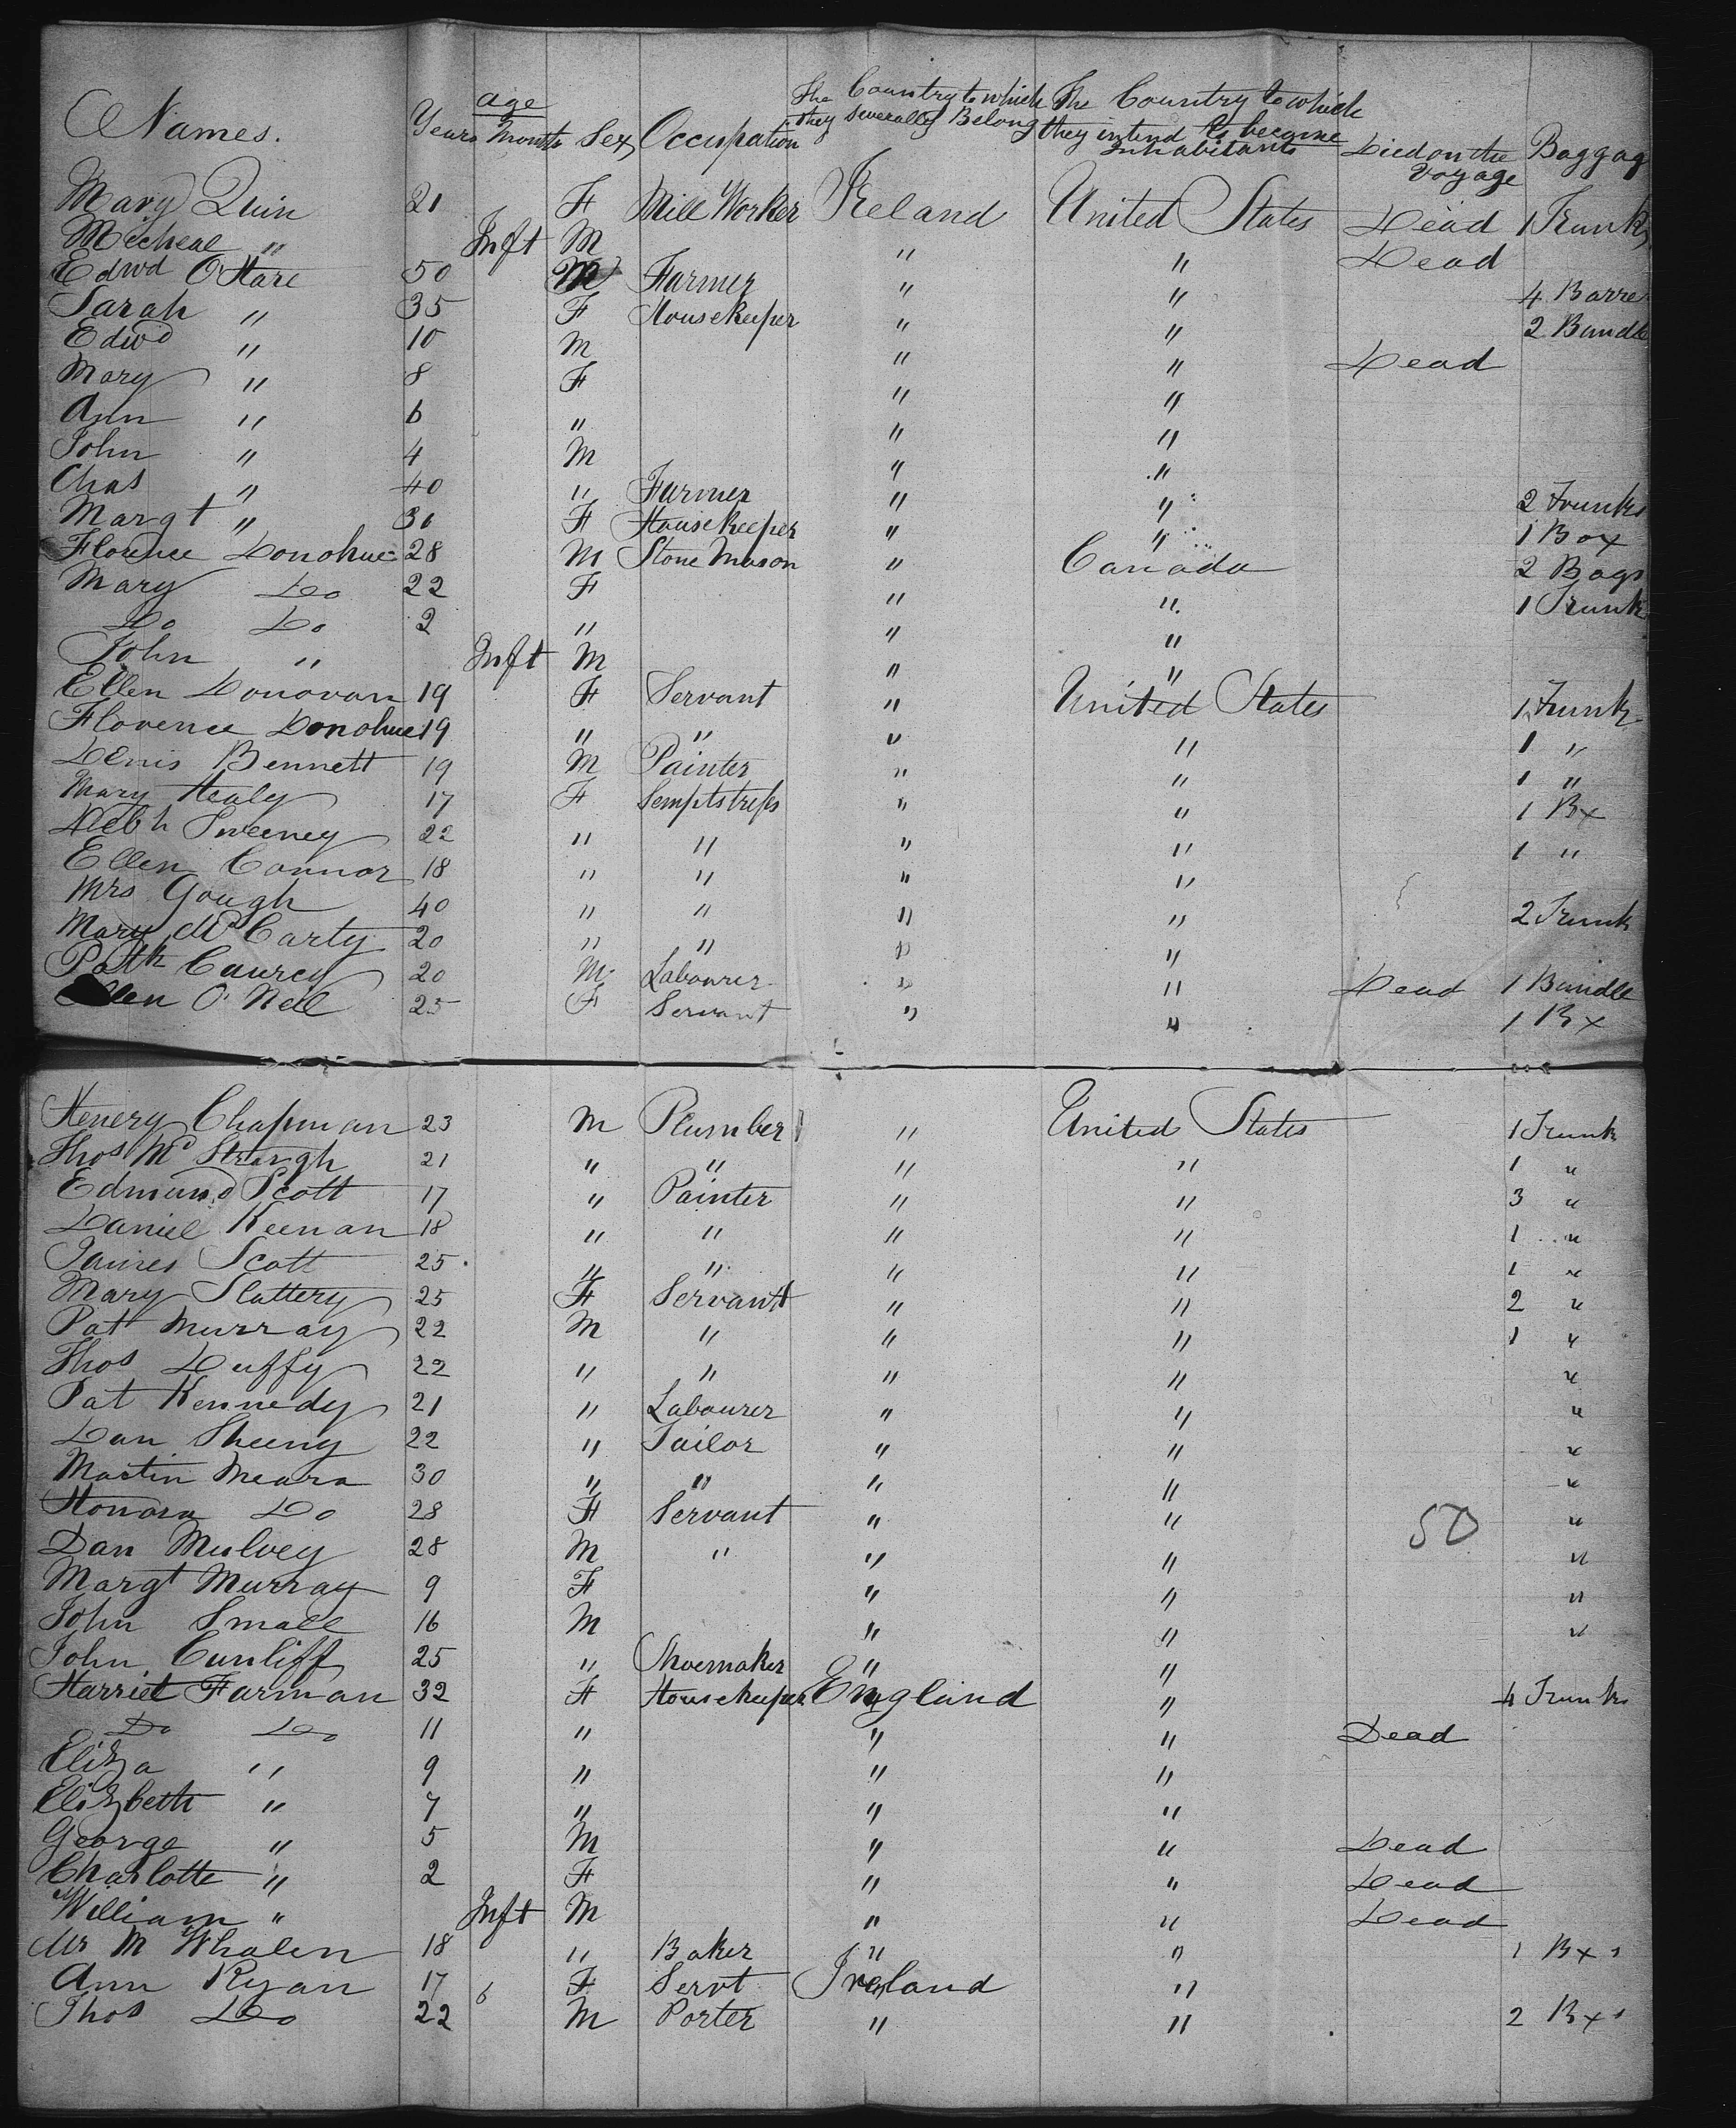 Names. Years age Months Sex Occupation The Country to which they severally Belong The Country to which they intend to become Inhabitants Died on the Voyage Baggag
Mary Quin 21 F Mill Worker Ireland United States Dead 1 Trunk
Micheal " Inft M " " Dead
Edwd O'Hare 50 M Farmer " " 4 Barre
Sarah " 35 F Housekeeper " " 2 Bundle
Edwd " 10 M " " Dead
Mary " 8 F " "
Ann " 6 " " "
John " 4 M " "
Chas " 40 " Farmer " " 2 Trunks
Margt " 36 F Housekeeper " " 1 Box
Florence Donohue 28 M Stone Mason " Canada 2 Bags
Mary Do 22 F " " 1 Trunk
Do Do 2 " " "
John " Inft M " "
Ellen Donovan 19 F Servant " United States 1 Trunk
Florence Donohue 19 " " " " 1 "
Denis Bennett 19 M Painter " " 1 "
Mary Healy 17 F Semptstress " " 1 Bx
Debh Sweeney 22 " " " " 1 "
Ellen Connor 18 " " " "
Mrs Gough 40 " " " " 2 Trunk
Mary McCarty 20 " " " "
Patk Caurcy 20 M Labourer " " Dead 1 Bundle
Ellen O'Neil 25 F Servant " " 1 Bx
Henery Chapman 23 M Plumber " United States 1 Trunk
Thos Mc Straugh 21 " " " " 1 "
Edmund Scott 17 " Painter " " 3 "
Daniel Keenan 18 " " " " 1 "
James Scott 25 " " " " 1 "
Mary Slattery 25 F Servant " " 2 "
Pat Murray 22 M " " " 1 "
Thos Duffy 22 " " " " "
Pat Kennedy 21 " Labourer " " "
Dan Sheeny 22 " Tailor " " "
Martin Meara 30 " " " " "
Honora Do 28 F Servant " " "
50
Dan Mulvey 28 M " " " "
Margt Murray 9 F " " "
John Small 16 M " " "
John Cunliff 25 " Shoemaker " "
Harriet Farman 32 F Housekeeper England " 4 Trunks
Do Do 11 " " " Dead
Eliza " 9 " " "
Elizbeth " 7 " " "
George " 5 M " " Dead
Charlotte " 2 F " " Dead
William " Inft M " " Dead
Mr M Whalen 18 " Baker " " 1 Bx
Ann Ryan 17 6 F Servt Ireland "
Thos Do 22 M Porter " " 2 Bxs